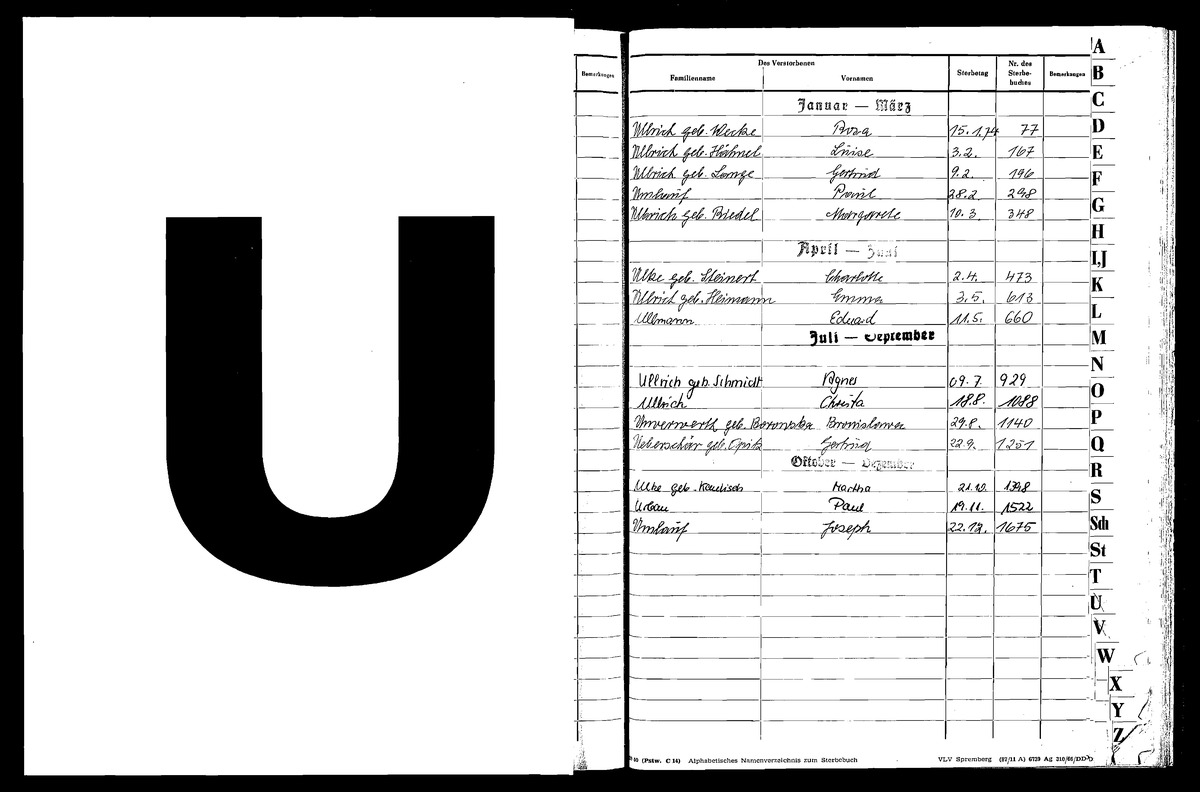 U
Bemerkungen
Des Verstorbenen
Familienname Vornamen Sterbetag Nr. des Sterbe-buches Bemerkungen
Januar — März
Ullrich geb. Wecke Rosa 15.1.74 77
Ullrich geb. Hähnel Luise 3.2. 167
Ullrich geb. Lange Gertrud 9.2. 196
Umlauf Paul 28.2. 298
Ullrich geb. Riedel Margarete 10.3. 348
April — Juni
Ulke geb. Steinert Charlotte 2.4. 473
Ullrich geb. Heimann Emma 3.5. 613
Ullmann Eduard 11.5. 660
Juli — September
Ullrich geb. Schmidt Agnes 09.7. 929
Ullrich Christa 18.8. 1088
Unverwerth geb. Borowska Bronislawa 29.8. 1140
Ueberschär geb. Opitz Gertrud 22.9. 1251
Oktober — Dezember
Ulke geb. Martha 21.10. 1398
Urban Paul 19.11. 1522
Umlauf Joseph 22.12. 1675
(Pstw. C 14) Alphabetisches Namenverzeichnis zum Sterbebuch VLV Spremberg (87/11 A) 6729 Ag 310/66/DD
A
B
C
D
E
F
G
H
I,J
K
L
M
N
O
P
Q
R
S
Sch
St
T
U
V
W
X
Y
Z